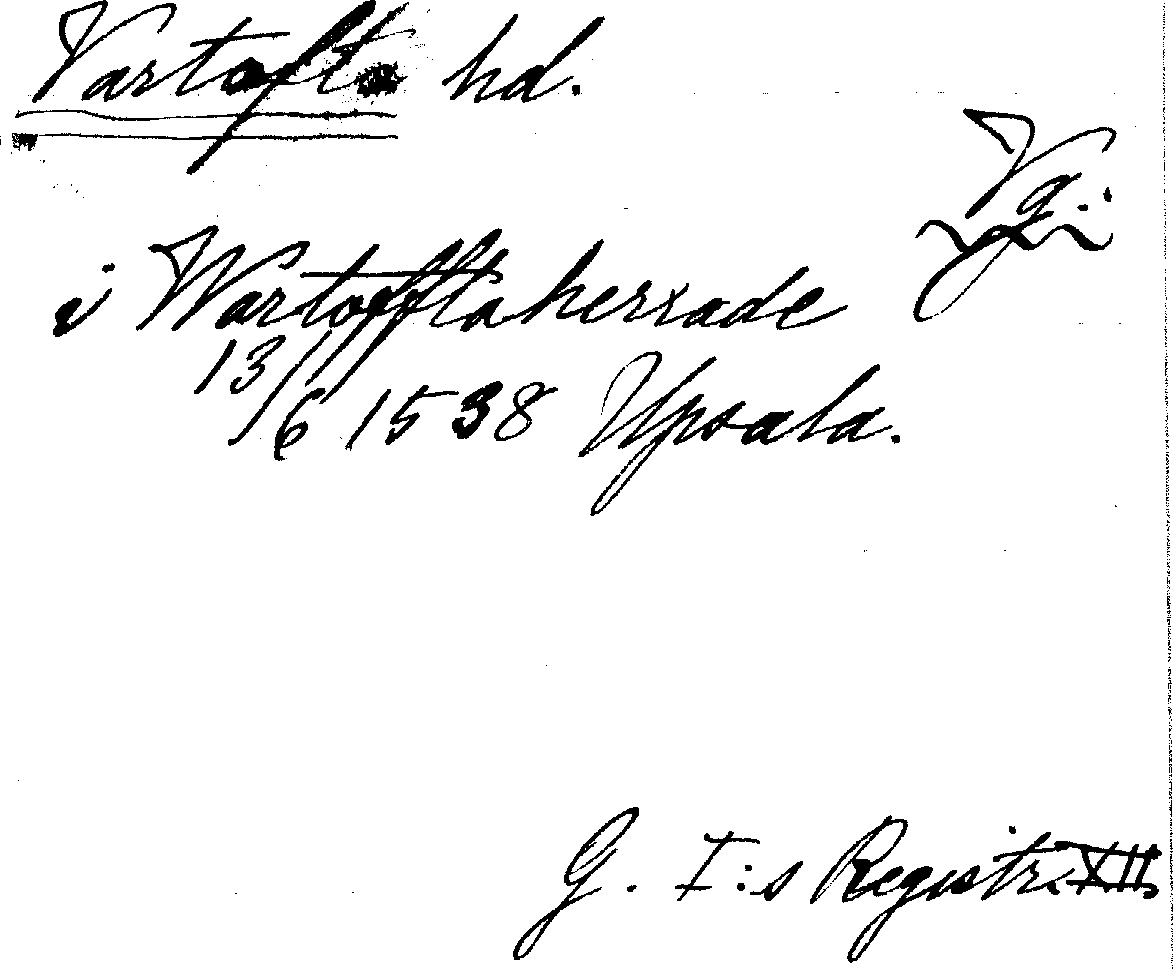 Vartofta hd.
Vg.
i Wartofftaherrade
13/6 1538 Upsala.
G. I:s Registr. XII